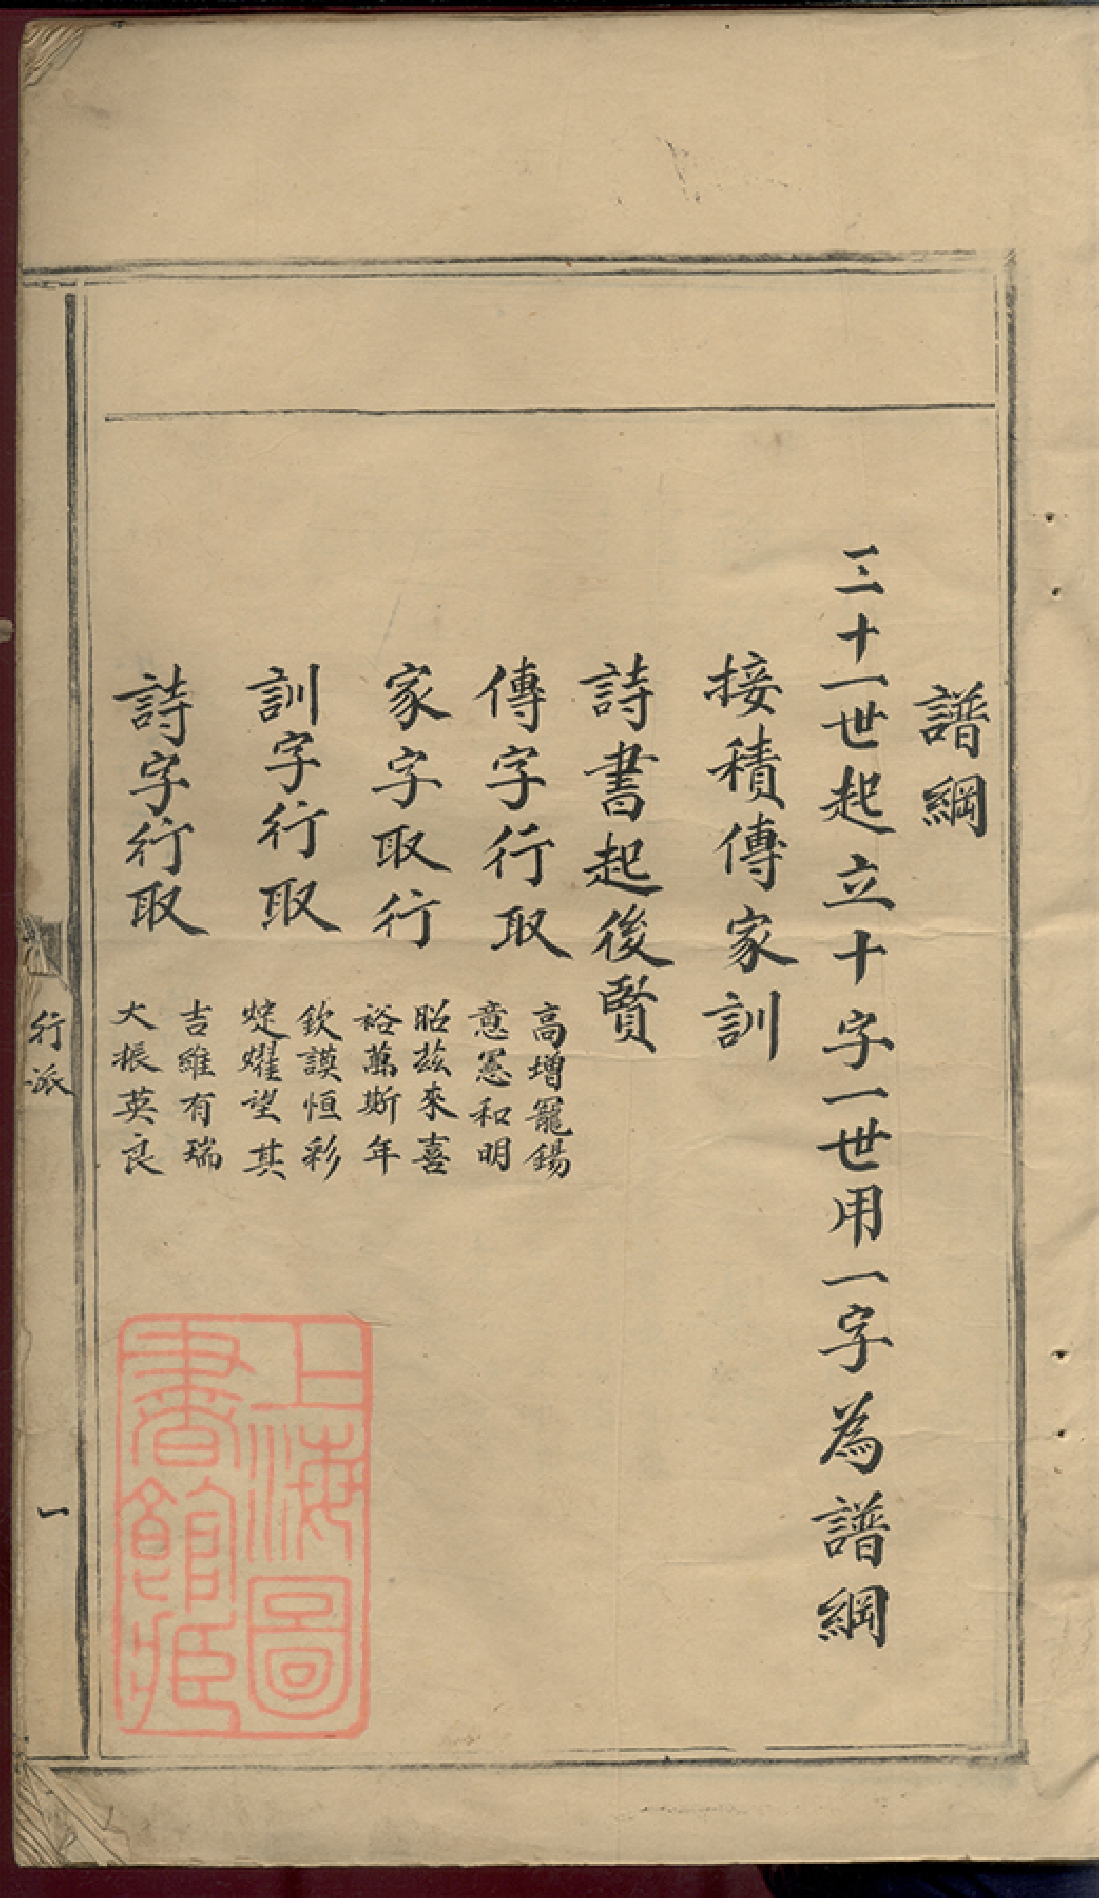 譜綱
三十一世起立十字一世用一字為譜綱
接積傳家訓
詩書起後賢
傳字行取
高增寵錫
意憲和明
家字取行
昭茲來喜
裕萬斯年
訓字行取
欽謨恒彩
耀望其
詩字行取
吉維有瑞
大振英良
行派
一
上海圖
書館藏